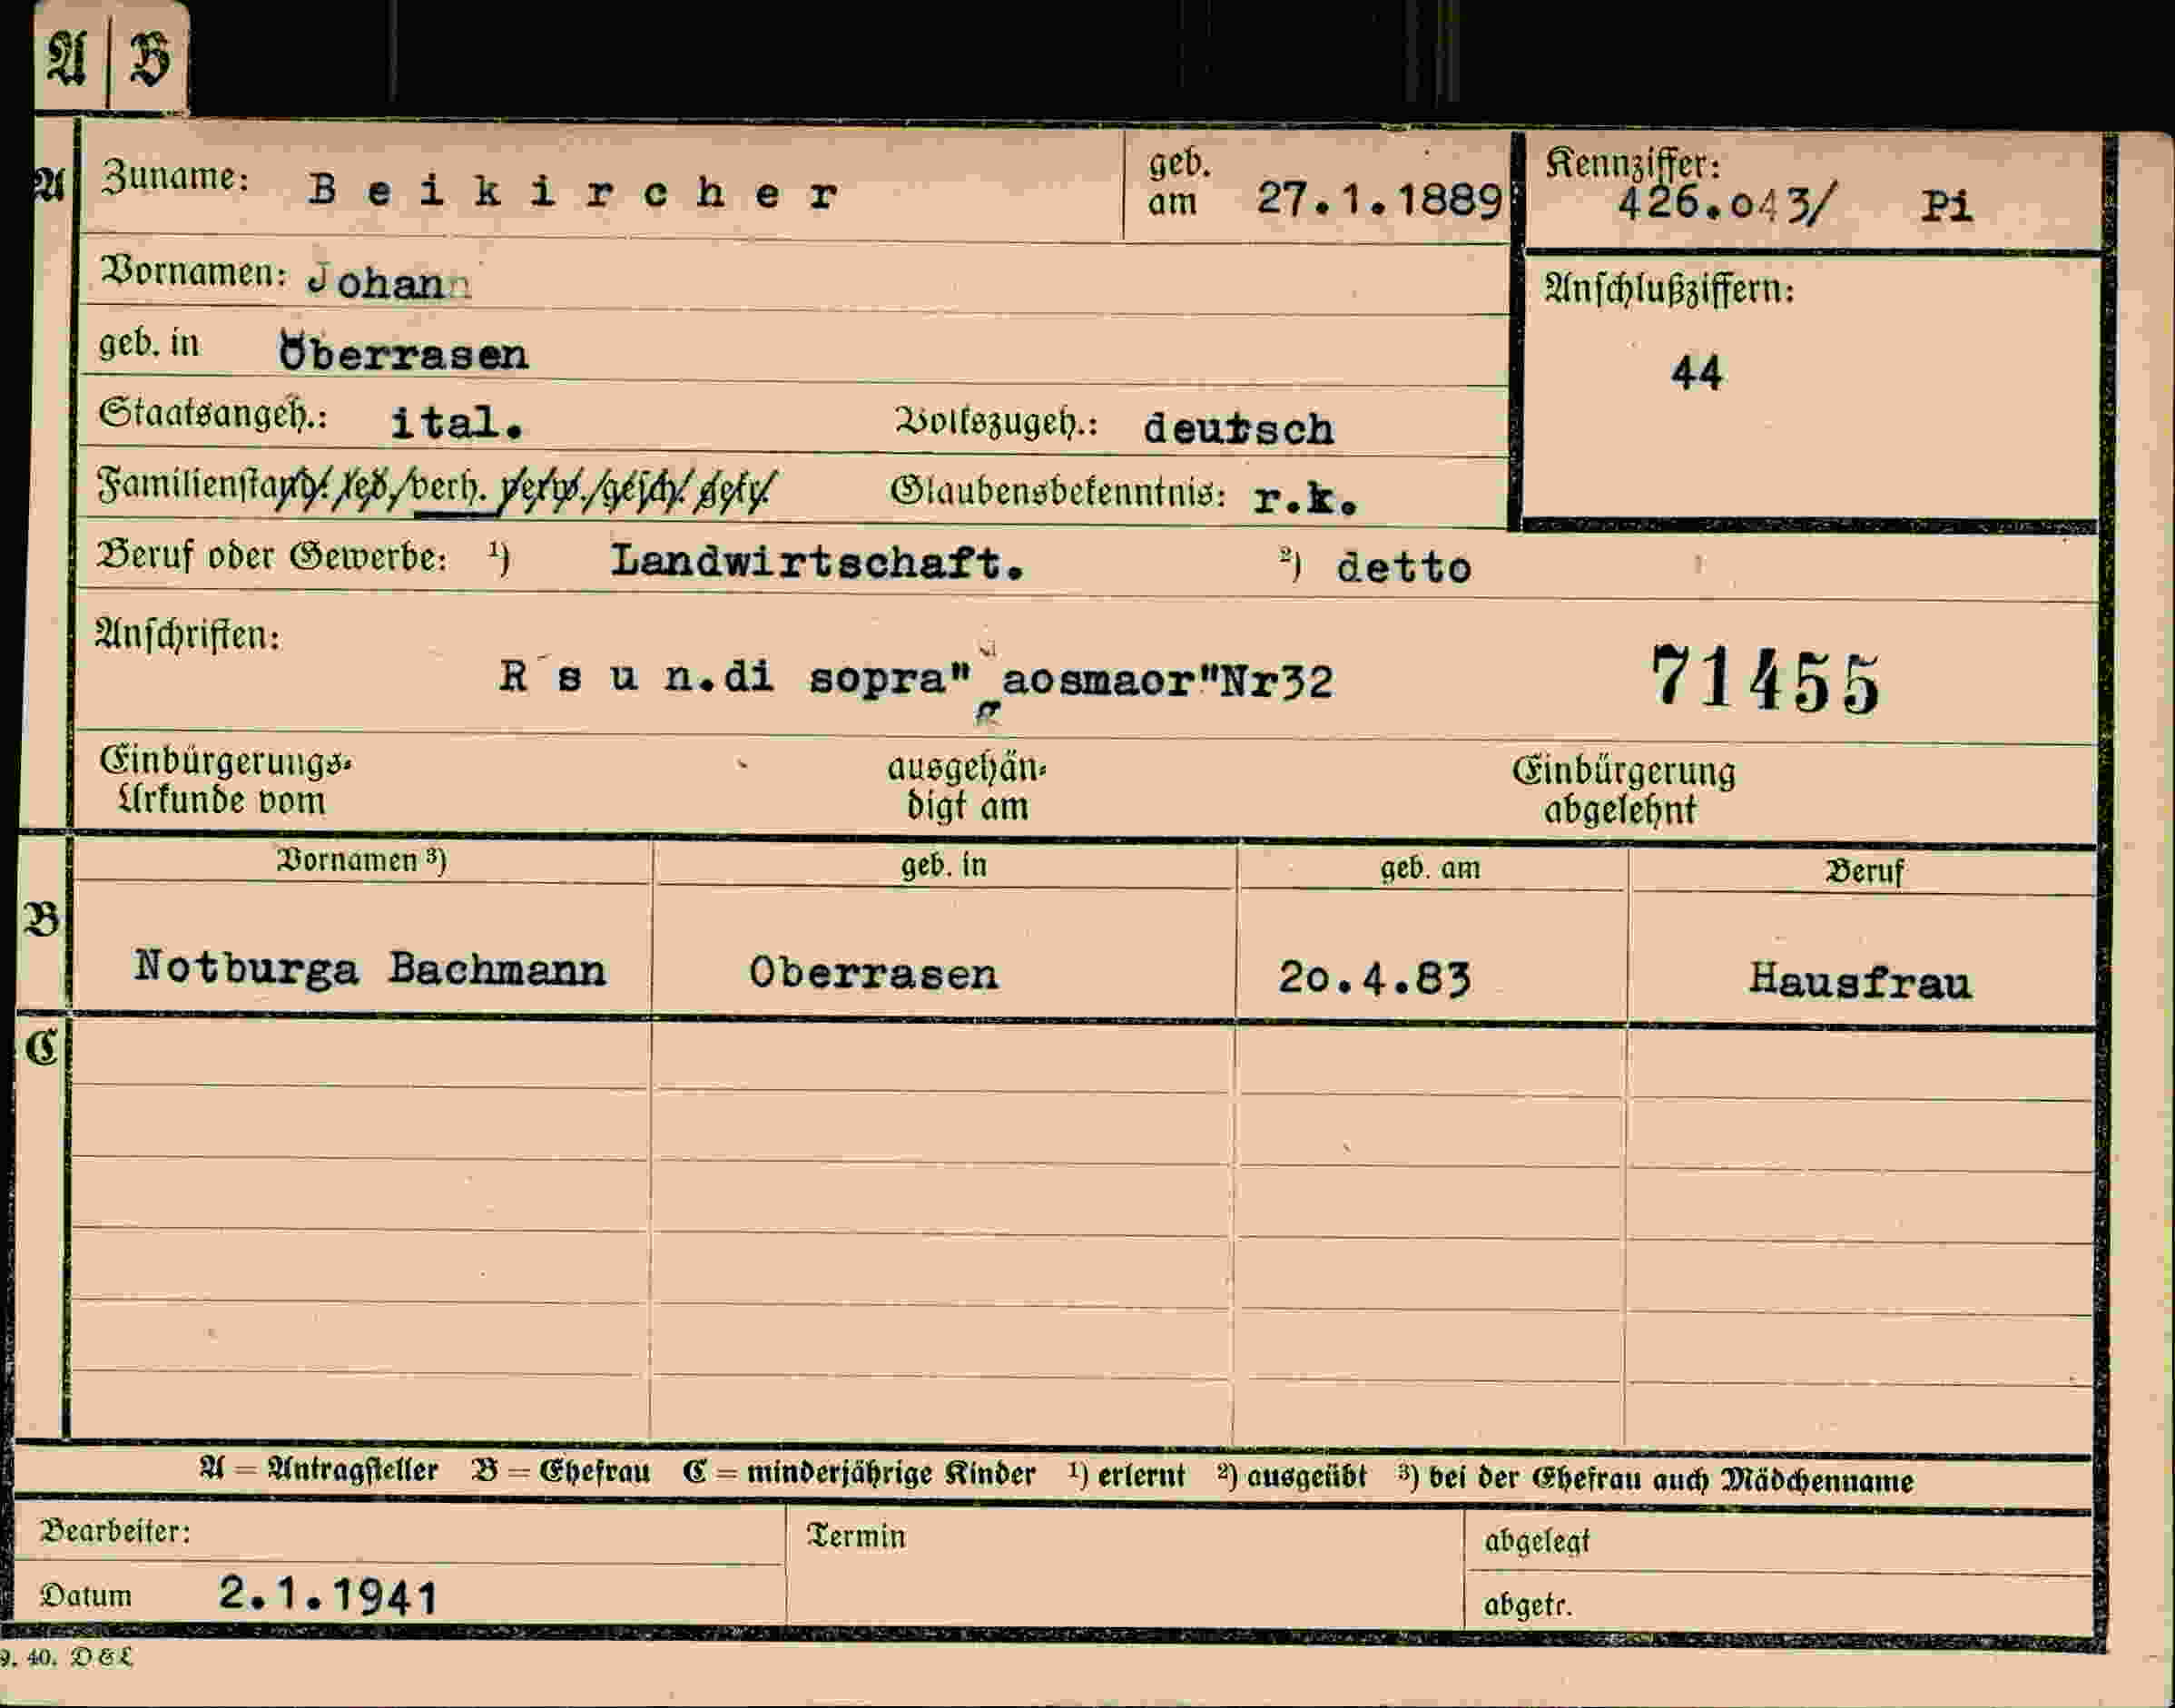 A B
A
Zuname: Beikircher
geb. am 27.1.1889
Kennziffer: 426.043/ Pi
Vornamen: Johann
Anschlußziffern:
44
geb. in Oberrasen
Staatsangeh.: ital. Volkszugeh.: deutsch
Familienstand: led./verh. verw./gesch. getr. Glaubensbekenntnis: r.k.
Beruf oder Gewerbe: ¹) Landwirtschaft. ²) detto
Anschriften:
R s u n.di sopra" aosmaor"Nr32
71455
Einbürgerungs-
Urkunde vom
ausgehän-
digt am
Einbürgerung
abgelehnt
Vornamen ³) geb. in geb. am Beruf
B
Notburga Bachmann Oberrasen 20.4.83 Hausfrau
C
A = Antragsteller B = Ehefrau C = minderjährige Kinder ¹) erlernt ²) ausgeübt ³) bei der Ehefrau auch Mädchenname
Bearbeiter: Termin abgelegt
Datum 2.1.1941 abgetr.
9. 40. D & L